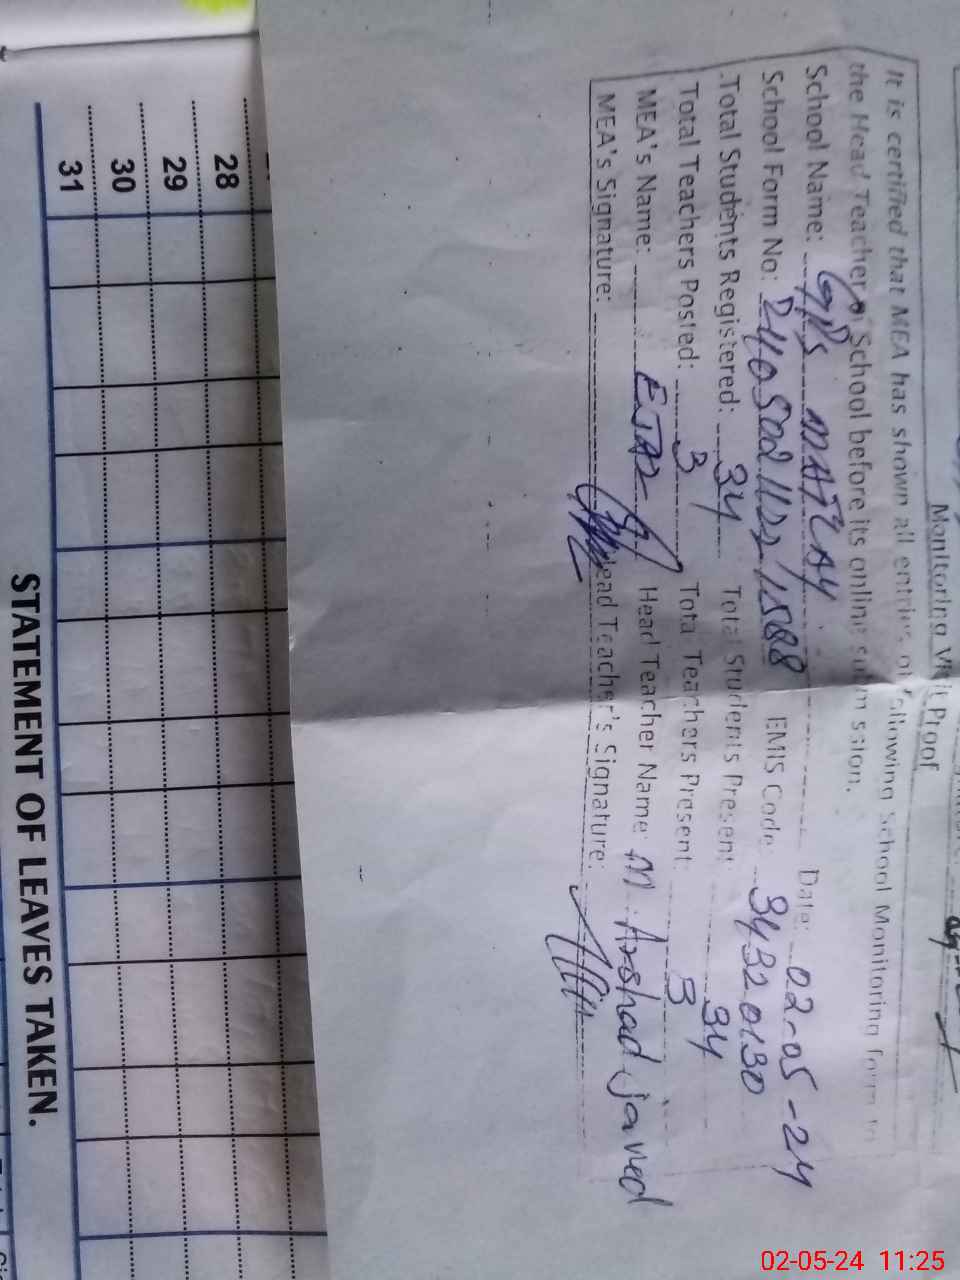 Monitoring Visit Proof
It is certified that MEA has shown all entries of following School Monitoring form to
the Head Teacher of School before its online submission.
School Name: GPS Date: 02-05-24
School Form No: EMIS Code: 34320130
Total Students Registered: 34 Total Students Present: 34
Total Teachers Posted: 3 Total Teachers Present: 3
MEA's Name: EJAZ Head Teacher Name: M. Arshad javed
MEA's Signature: Head Teacher's Signature:
28
29
30
31
STATEMENT OF LEAVES TAKEN.
02-05-24 11:25